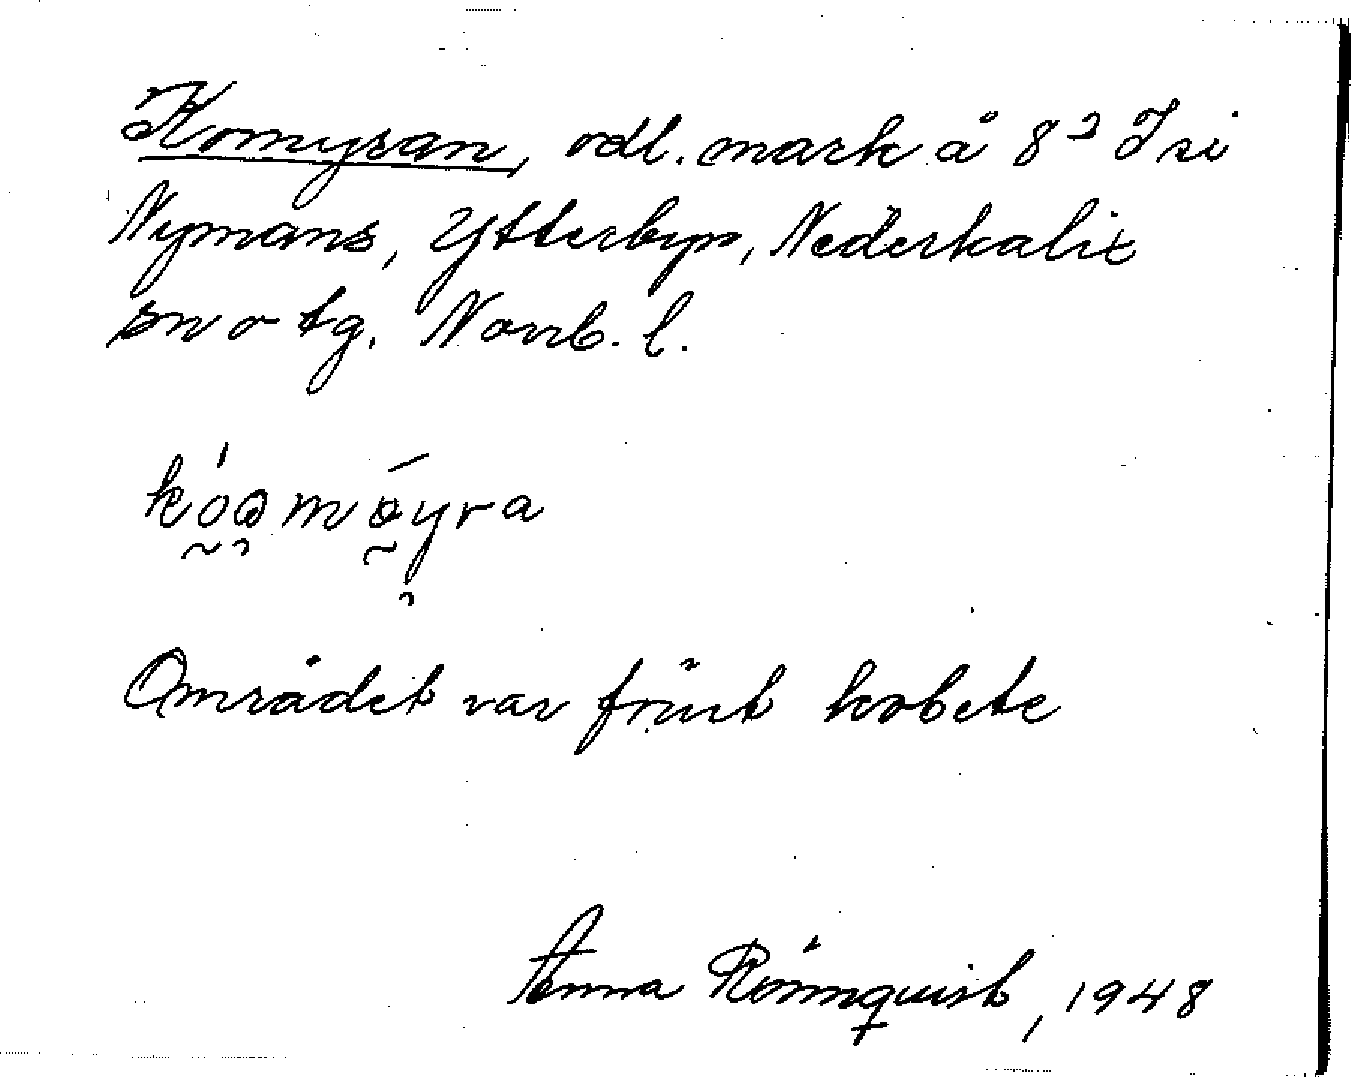 Komyran, odl. mark å 8² Isi
Nymans, Ytterbyn, Nederkalix
sn o tg. Norrb. l.
kóəmøyra
Området var förut kobete
Anna Rönnquist, 1948